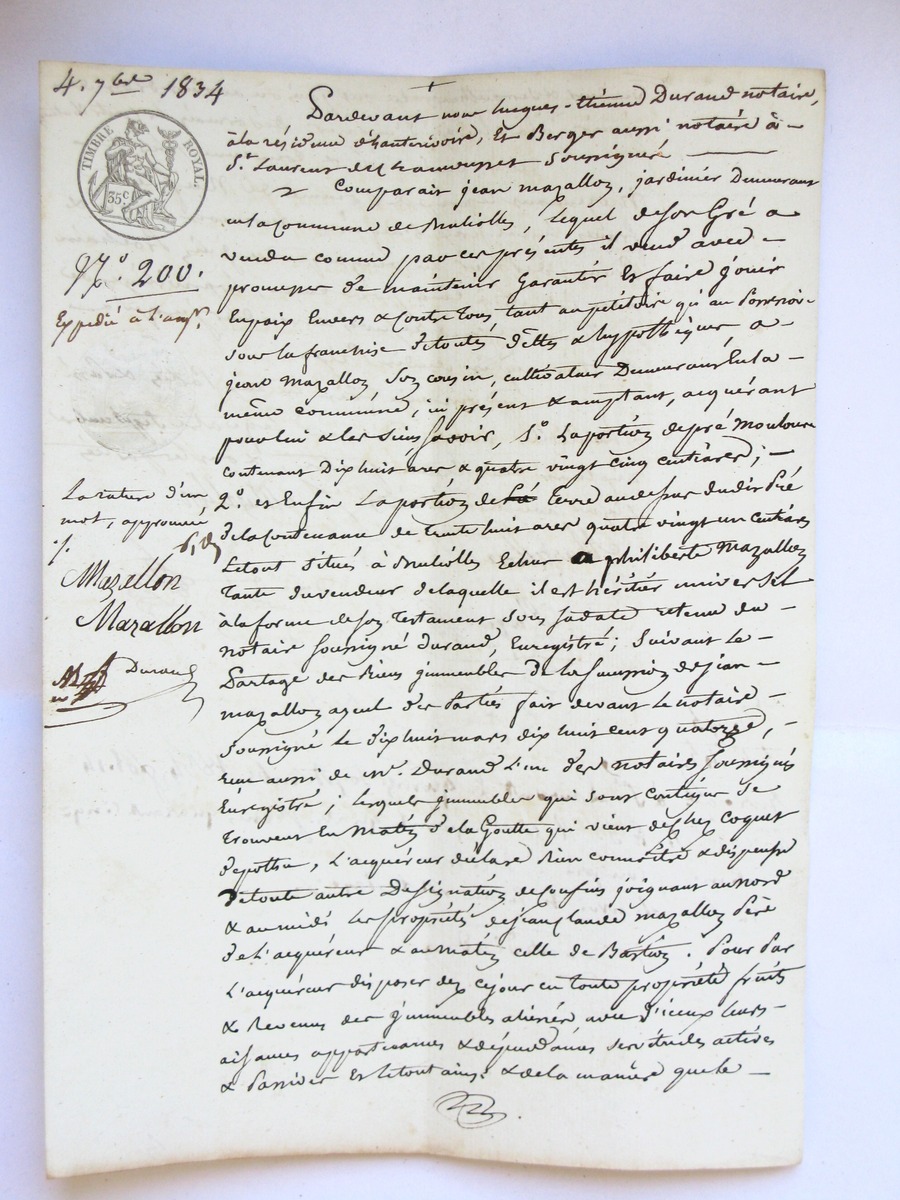 4. 7bre 1834
TIMBRE ROYAL
35 c
N.o 200.
Expédié à l'aqr.
Pardevant nous hugues-étienne Durand notaire,
à la résidence d'hauterivoire, Et Berger aussi notaire à –
St. Laurent de Chamousset Soussignés
Comparait jean mazallon, jardinier Demeurant
en la Commune de Bruliolles, lequel de son Gré a
vendu comme par ces présentes il vend avec –
promesse de maintenir Garantir Et faire jouir
En paix Envers & Contre tous tant au pétitoire qu'au Possessoire
sous la franchise de toutes dettes & hypothèques à –
jean Mazallon Son cousin, cultivateur Demeurant En la –
même commune, ici présent & acceptant, acquérant
pour lui & les siens Savoir, 1.o La portion de pré Mouloure
contenant Dix huit ares & quatre vingt cinq centiares; –
2.o et Enfin La portion de terre au dessus dudit Pré
de la Contenance de trente huit ares quatre vingt un centiares
Le tout Situés à Brulioles Echus a philiberte Mazallon
Tante du vendeur de laquelle il est héritier universel
à la forme de son Testament Sous sa date retenu du –
notaire Soussigné Durand, Enregistré; Suivant le –
Partage des Biens immeubles De la Succession de jean –
mazallon agent des Parties fait devant le notaire –
Soussigné le dix huit mars dix huit cent quatorze, –
reçu aussi de Me. Durand l'un des notaires Soussignés
Enregistré; lesquels immeubles qui sont contigus se
trouvent En Matin de la Goutte qui vient de chez coquet
depotha, L'acquéreur déclare Bien connoitre & dispense
de toute autre Désignation de Confins joignant au nord
& au midi les propriétés de jean Claude mazallon Père
de L'acquéreur & au Matin celle de Bastion. Pour Par
L'acquéreur disposer des ce jour en toute propriété fruits
& Revenus des immeubles aliénés avec d'iceux leurs –
aisances appartenances & dépendances servitudes actives
& Passives Et le tout ainsi & de la manière que le –
La rature d'un
mot, approuvée
Mazellon
Mazallon
Durand